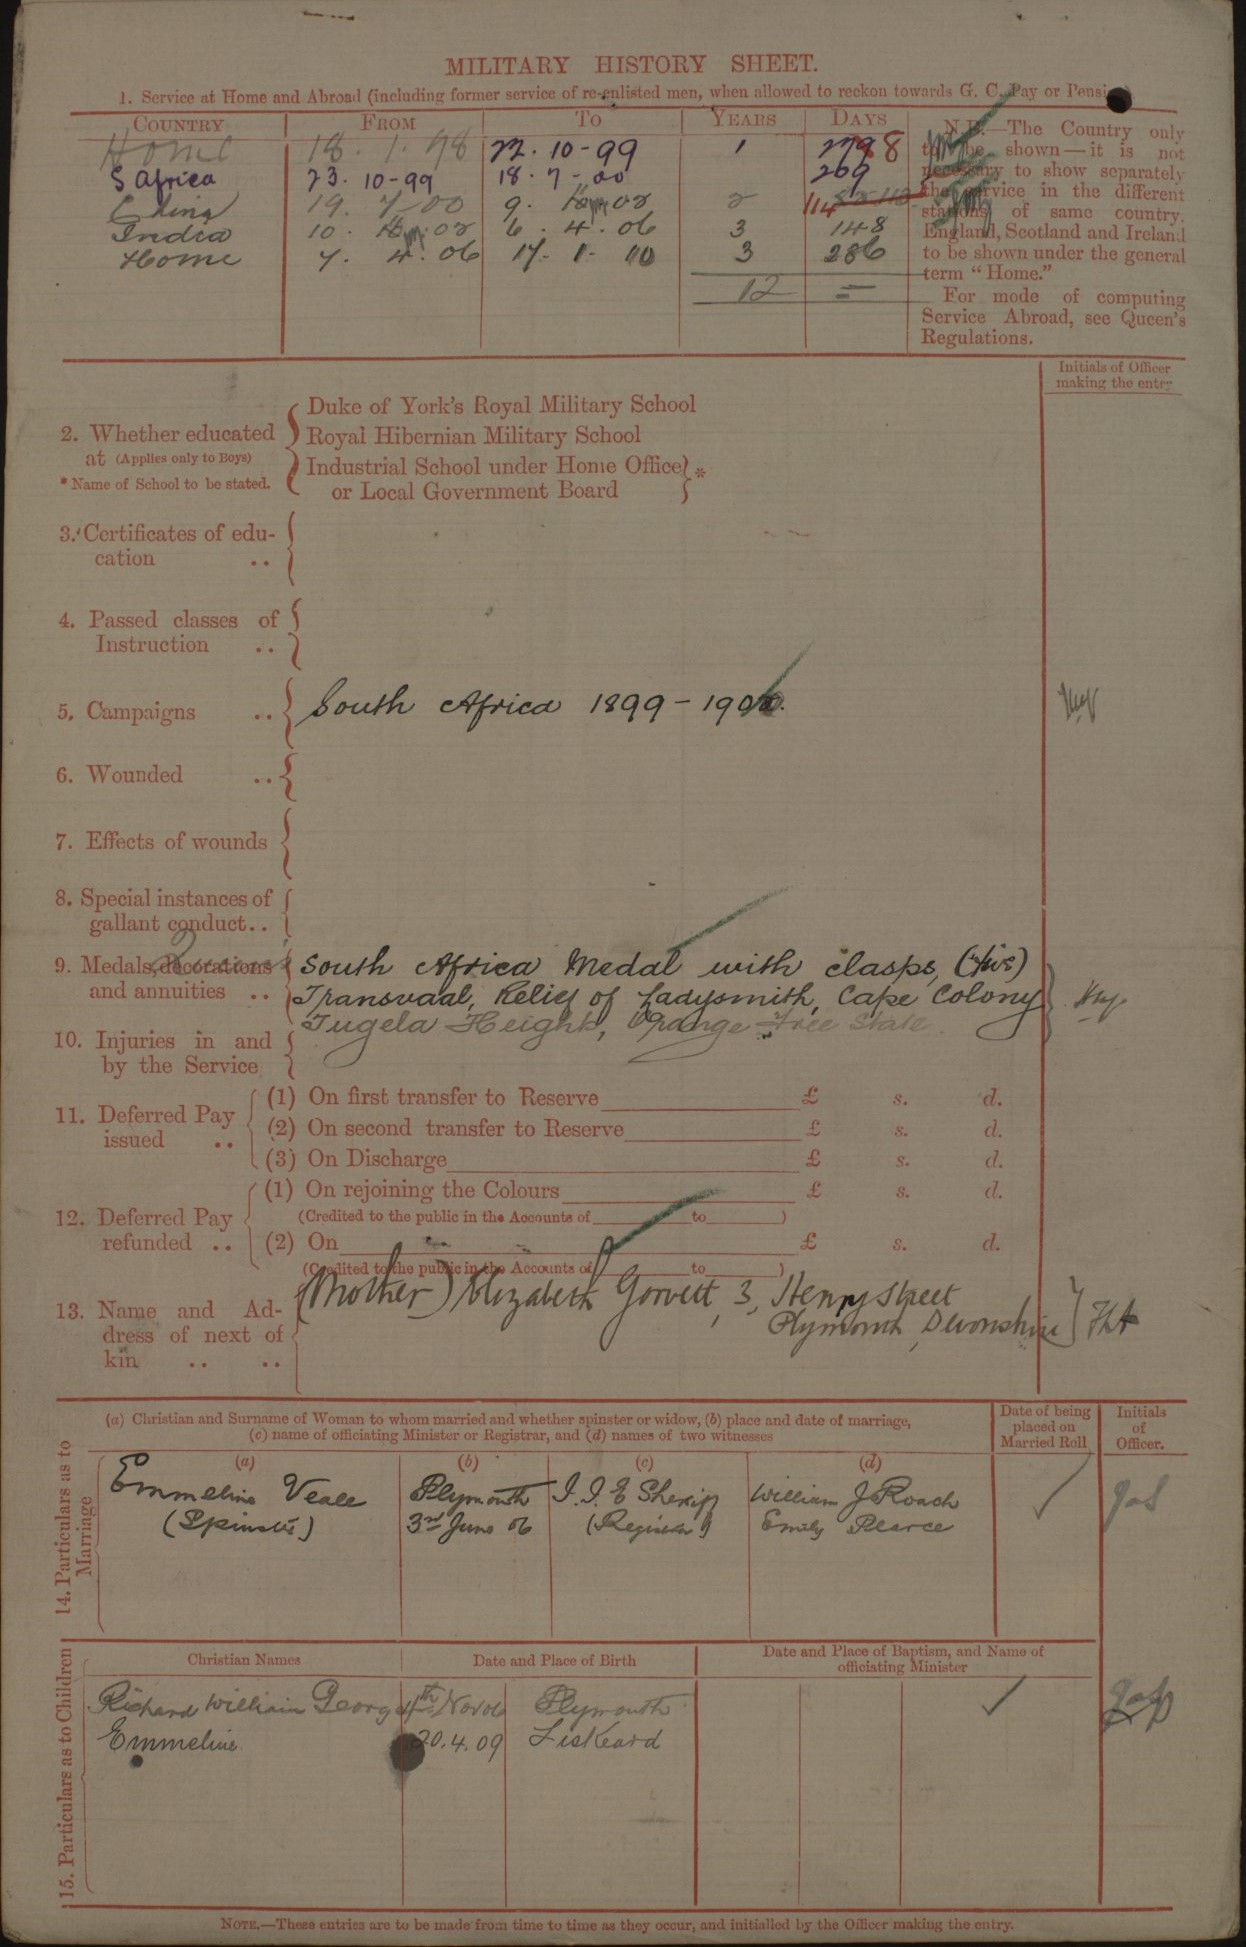 MILITARY HISTORY SHEET.
1. Service at Home and Abroad (including former service of re-enlisted men, when allowed to reckon towards G. C. Pay or Pension)
COUNTRY FROM TO YEARS DAYS
Home 18. 1. 98 22. 10-99 1 278
S Africa 23. 10-99 18. 7-00 269
China 19. 7 00 9. 02 2 114
India 10. 02 6. 4. 06 3 148
Home 7. 4. 06 17. 1. 10 3 286
12 =
N.B.—The Country only
to be shown—it is not
necessary to show separately
the service in the different
stations of same country.
England, Scotland and Ireland
to be shown under the general
term "Home."
For mode of computing
Service Abroad, see Queen's
Regulations.
Initials of Officer
making the entry
2. Whether educated
at (Applies only to Boys)
* Name of School to be stated.
Duke of York's Royal Military School
Royal Hibernian Military School
Industrial School under Home Office
or Local Government Board *
3. Certificates of edu-
cation ..
4. Passed classes of
Instruction ..
5. Campaigns .. South Africa 1899-190
6. Wounded ..
7. Effects of wounds
8. Special instances of
gallant conduct..
Queen's
9. Medals, decorations
and annuities ..
South Africa Medal with clasps, (five)
Transvaal, Relief of Ladysmith, Cape Colony
Tugela Heights, Orange Free State
10. Injuries in and
by the Service
11. Deferred Pay
issued ..
(1) On first transfer to Reserve £ s. d.
(2) On second transfer to Reserve £ s. d.
(3) On Discharge £ s. d.
12. Deferred Pay
refunded ..
(1) On rejoining the Colours £ s. d.
(Credited to the public in the Accounts of to )
(2) On £ s. d.
(Credited to the public in the Accounts of to )
13. Name and Ad-
dress of next of
kin .. ..
(Mother) Elizabeth Gorvett, 3, Henry Street
Plymouth, Devonshire
14. Particulars as to
Marriage
(a) Christian and Surname of Woman to whom married and whether spinster or widow, (b) place and date of marriage,
(c) name of officiating Minister or Registrar, and (d) names of two witnesses
Date of being
placed on
Married Roll
Initials
of
Officer.
(a) (b) (c) (d)
Emmeline Veale Plymouth William J Roach
(Spinster) 3rd June 06 (Registrar) Emily Pearce
15. Particulars as to Children
Christian Names Date and Place of Birth
Date and Place of Baptism, and Name of
officiating Minister
Richard William George 4th Nov 06 Plymouth
Emmeline 20.4.09 Liskeard
NOTE.—These entries are to be made from time to time as they occur, and initialled by the Officer making the entry.